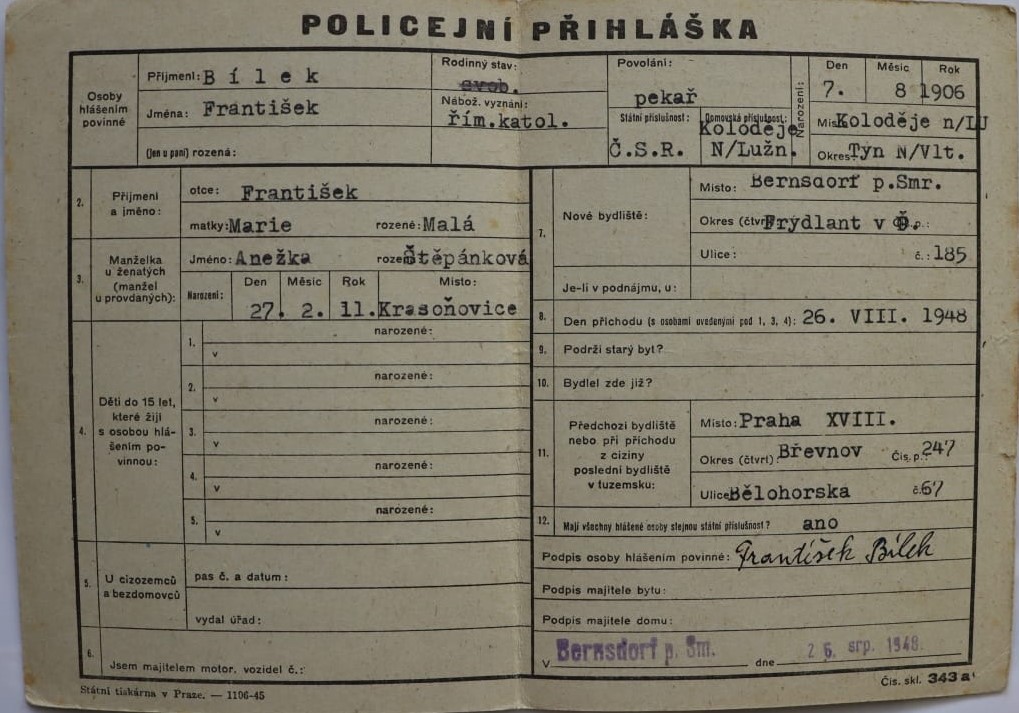 POLICEJNÍ PŘIHLÁŠKA
Osoby hlášením povinné
Přijmení: Bílek
Jména: František
(Jen u paní) rozená:
Rodinný stav: svob.
Nábož. vyznání: řím.katol.
Povolání: pekař
Státní příslušnost: Č.S.R.
Domovská příslušnost: Koloděje N/Lužn.
Narození:
Den Měsíc Rok
7. 8 1906
Místo Koloděje n/LU
Okres Týn N/Vlt.
2. Přijmení a jméno:
otce: František
matky: Marie rozené: Malá
3. Manželka u ženatých (manžel u provdaných):
Jméno: Anežka rozená Štěpánková
Narození: Den Měsíc Rok Místo:
27. 2. 11. Krasoňovice
4. Děti do 15 let, které žijí s osobou hlášením povinnou:
1. narozené:
v
2. narozené:
v
3. narozené:
v
4. narozené:
v
5. narozené:
v
5. U cizozemců a bezdomovců
pas č. a datum:
vydal úřad:
6. Jsem majitelem motor. vozidel č.:
7. Nové bydliště:
Místo: Bernsdorf p.Smr.
Okres (čtvrť) Frýdlant v Č.p.:
Ulice: č.: 185
Je-li v podnájmu, u:
8. Den příchodu (s osobami uvedenými pod 1, 3, 4): 26. VIII. 1948
9. Podrží starý byt?
10. Bydlel zde již?
11. Předchozí bydliště nebo při příchodu z ciziny poslední bydliště v tuzemsku:
Místo: Praha XVIII.
Okres (čtvrť) Břevnov Čis. p.: 247
Ulice Bělohorská č. 67
12. Mají všechny hlášené osoby stejnou státní příslušnost? ano
Podpis osoby hlášením povinné: František Bílek
Podpis majitele bytu:
Podpis majitele domu:
V Bernsdorf p. Sm. dne 26. srp. 1948.
Státní tiskárna v Praze. — 1106-45
Čís. skl. 343 a